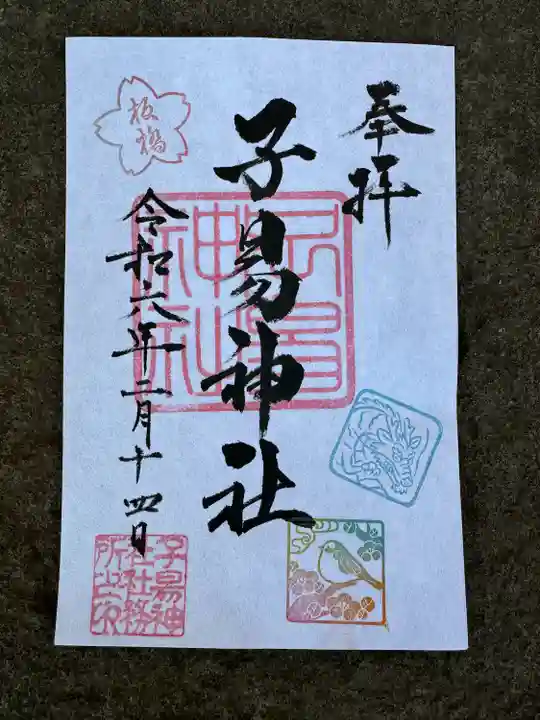 奉拝
子易神社
令和六年二月十四日
板橋
子易神社
子易神社社務所之印